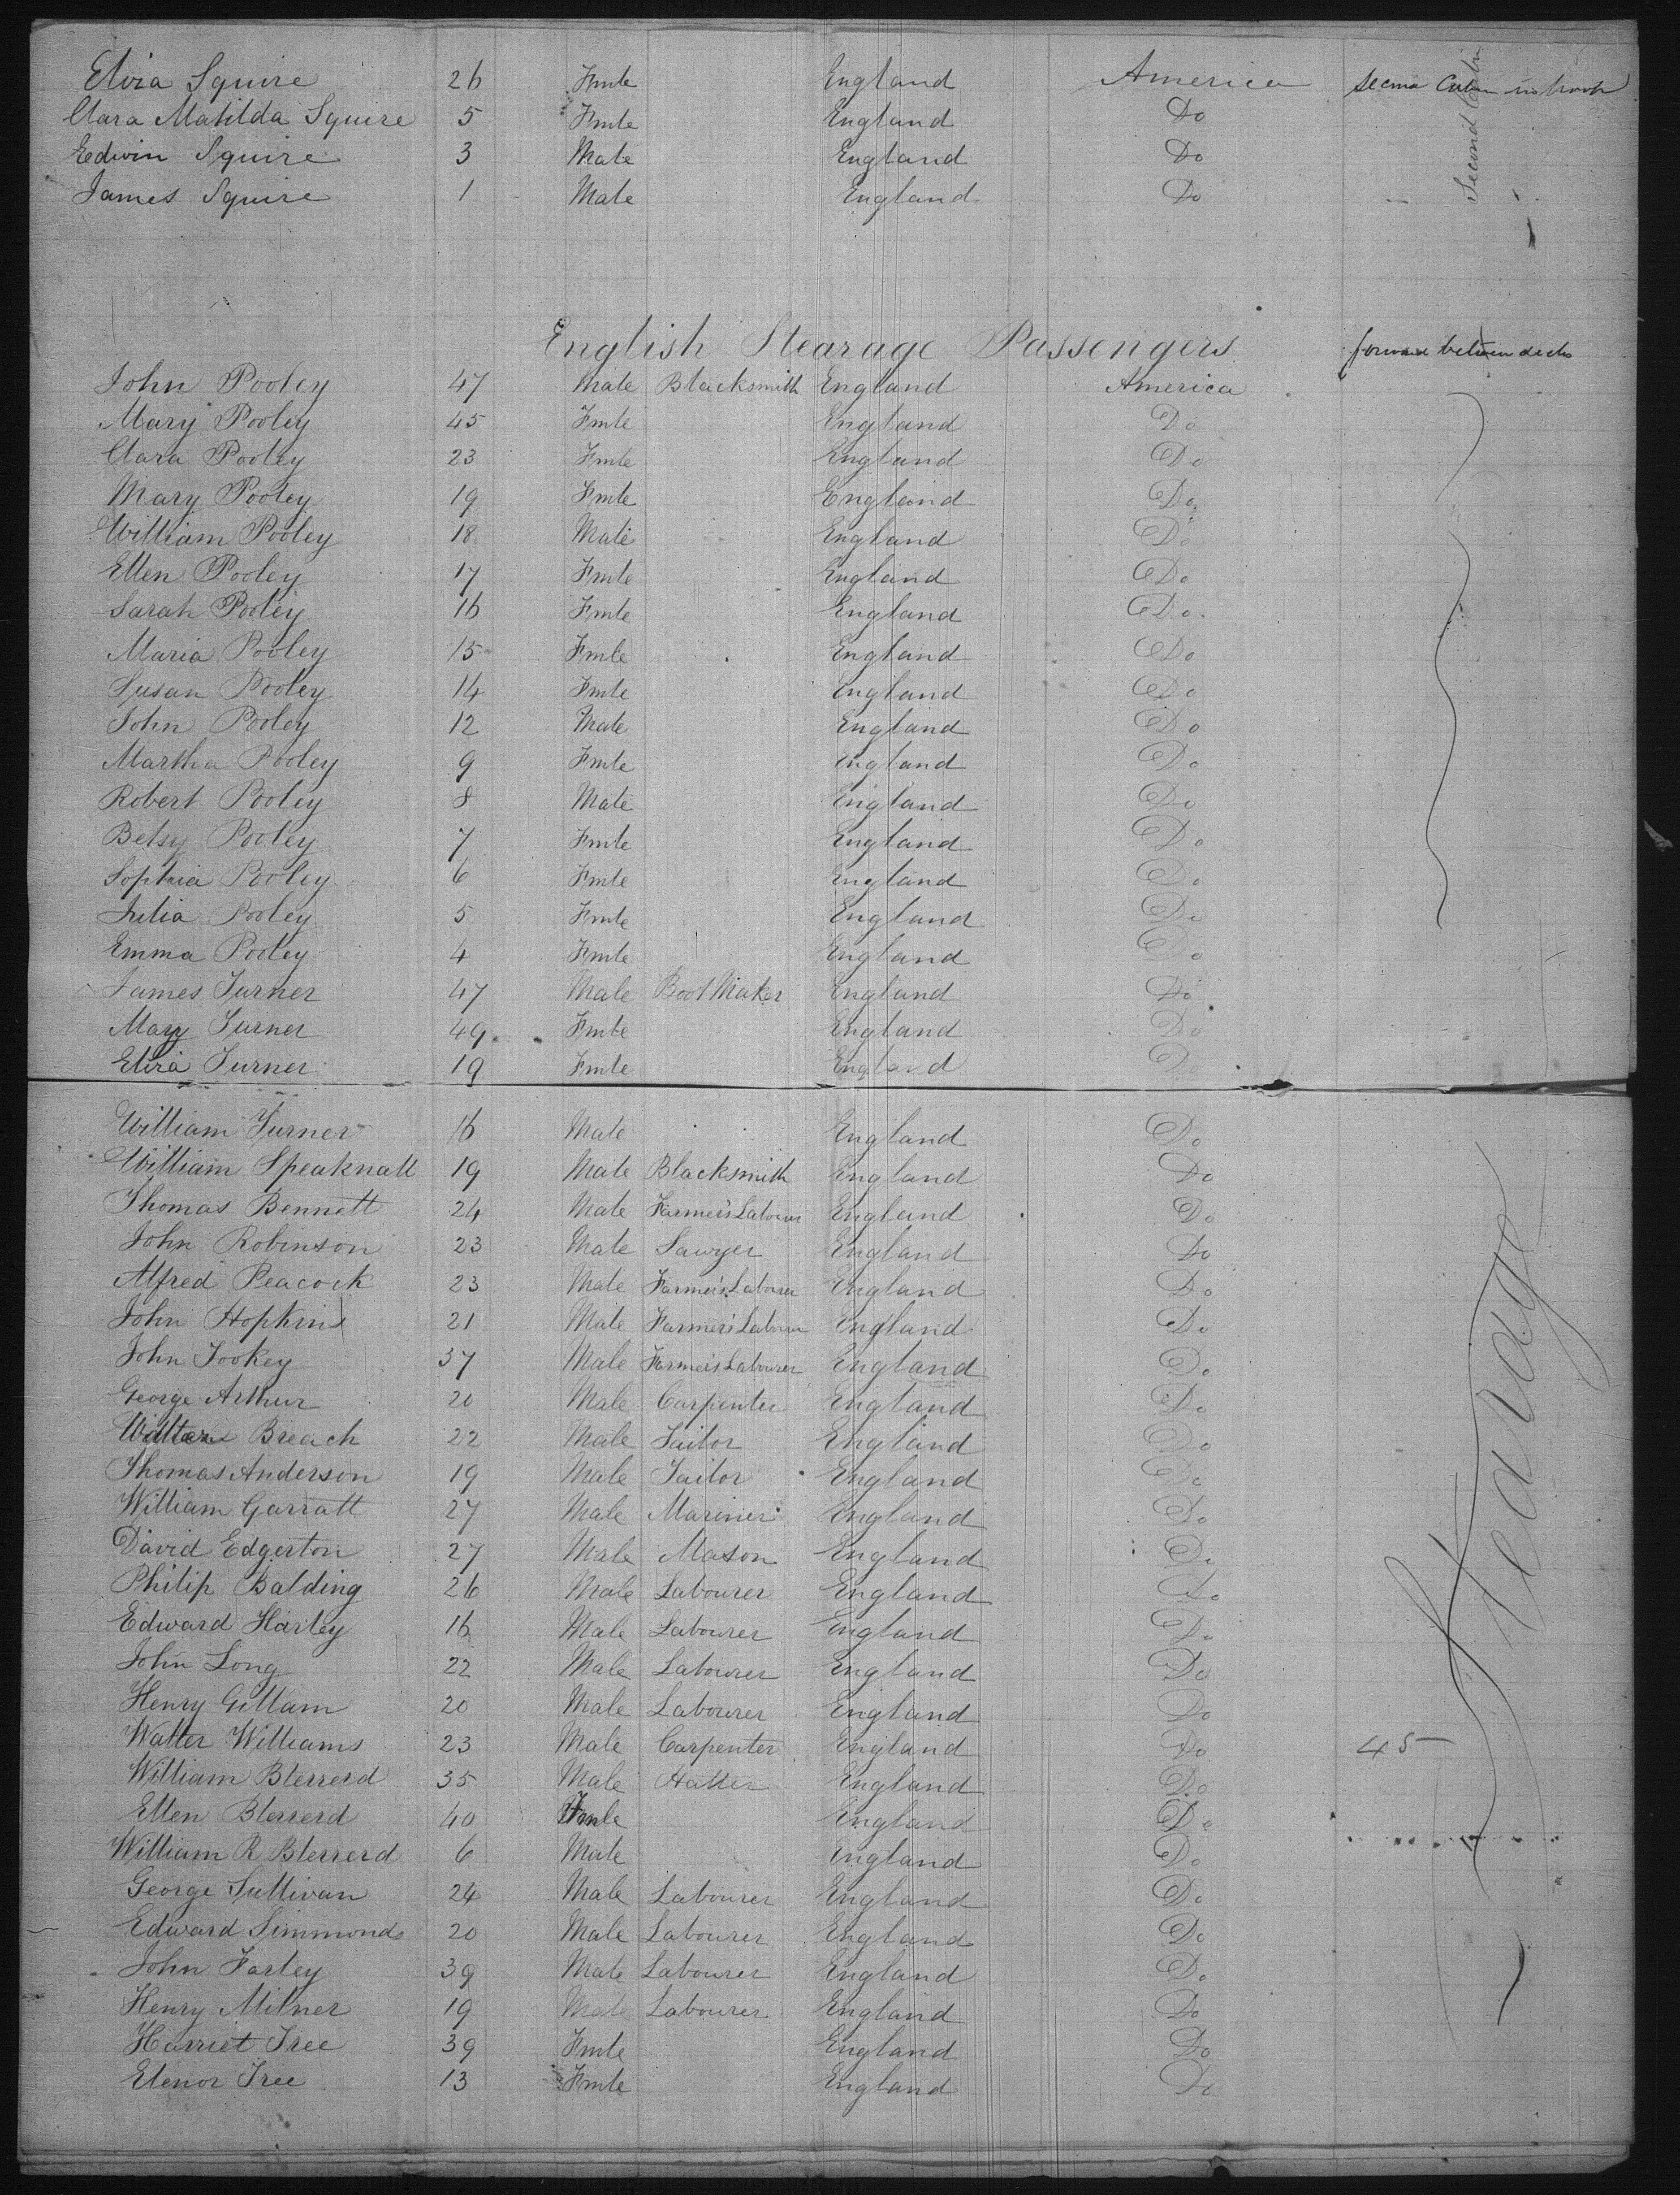 Elvia Squire 26 Fmle England America Second Cabin in poop
Clara Matilda Squire 5 Fmle England Do
Edwin Squire 3 Male England Do
James Squire 1 Male England Do
Second Cabin
English Stearage Passengers forward between decks
John Pooley 47 Male Blacksmith England America
Mary Pooley 45 Fmle England Do
Clara Pooley 23 Fmle England Do
Mary Pooley 19 Fmle England Do
William Pooley 18 Male England Do
Ellen Pooley 17 Fmle England Do
Sarah Pooley 16 Fmle England Do
Maria Pooley 15 Fmle England Do
Susan Pooley 14 Fmle England Do
John Pooley 12 Male England Do
Martha Pooley 9 Fmle England Do
Robert Pooley 8 Male England Do
Betsy Pooley 7 Fmle England Do
Sophia Pooley 6 Fmle England Do
Julia Pooley 5 Fmle England Do
Emma Pooley 4 Fmle England Do
James Turner 47 Male Boot Maker England Do
Mary Turner 49 Fmle England Do
Elvia Turner 19 Fmle England Do
William Turner 16 Male England Do
William Speaknall 19 Male Blacksmith England Do
Thomas Bennett 24 Male Farmer's Labourer England Do
John Robinson 23 Male Sawyer England Do
Alfred Peacock 23 Male Farmer's Labourer England Do
John Hopkins 21 Male Farmer's Labourer England Do
John Tookey 37 Male Farmer's Labourer England Do
George Arthur 20 Male Carpenter England Do
Breach 22 Male Tailor England Do
Thomas Anderson 19 Male Tailor England Do
William Garratt 27 Male Mariner England Do
David Edgerton 27 Male Mason England Do
Philip Balding 26 Male Labourer England Do
Edward Harley 16 Male Labourer England Do
John Long 22 Male Labourer England Do
Henry Gillam 20 Male Labourer England Do
Walter Williams 23 Male Carpenter England Do 45
William Blerrerd 35 Male Hatter England Do
Ellen Blerrerd 40 Fmle England Do
William R Blerrerd 6 Male England Do
George Sullivan 24 Male Labourer England Do
Edward Simmonds 20 Male Labourer England Do
John Farley 39 Male Labourer England Do
Henry Milner 19 Male Labourer England Do
Harriet Tree 39 Fmle England Do
Elenor Tree 13 Fmle England Do
Stearage